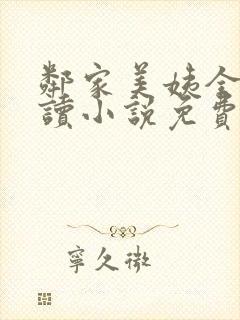 鄰家美姨全
讀小說免費
寧久微